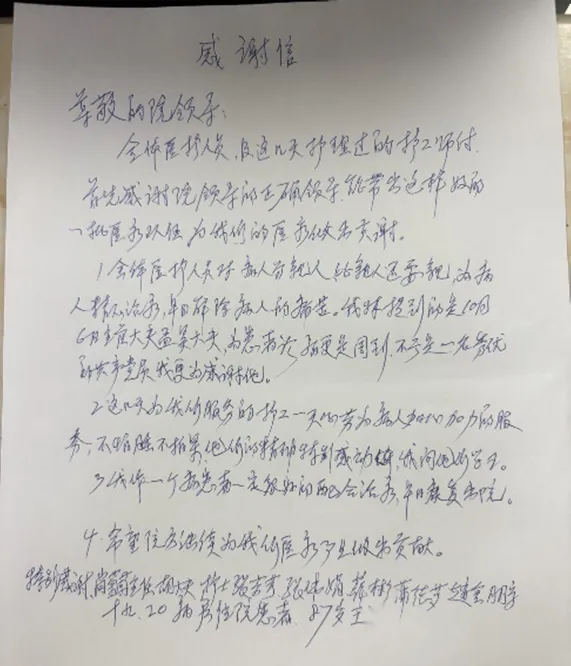 感谢信
尊敬的院领导:
全体医护人员,及这几天护理过的护工师付.
首先感谢院领导的正确领导,能带出这样好的
一批医疗队伍为我们的医疗做出贡献。
1.全体医护人员对病人当亲人比亲人还要亲,为病
人精心治疗,早日解除病人的痛苦。我特提到的是10月
6日主座大夫孟昊大夫,为患者治病更是周到,不亏是一名
的共产党员我更为感谢他。
2.这几天为我们服务的护工一天的劳为病人加心加力的服
务,不怕脏不怕累,他们的精神特别感动,我向他们学习。
3.我作一个病患者一定很好的配合治疗,早日康复出院。
4.希望院方继续为我们医疗做出贡献。
特别感谢,主任 护士
十九.20病房住院患者. 87岁王